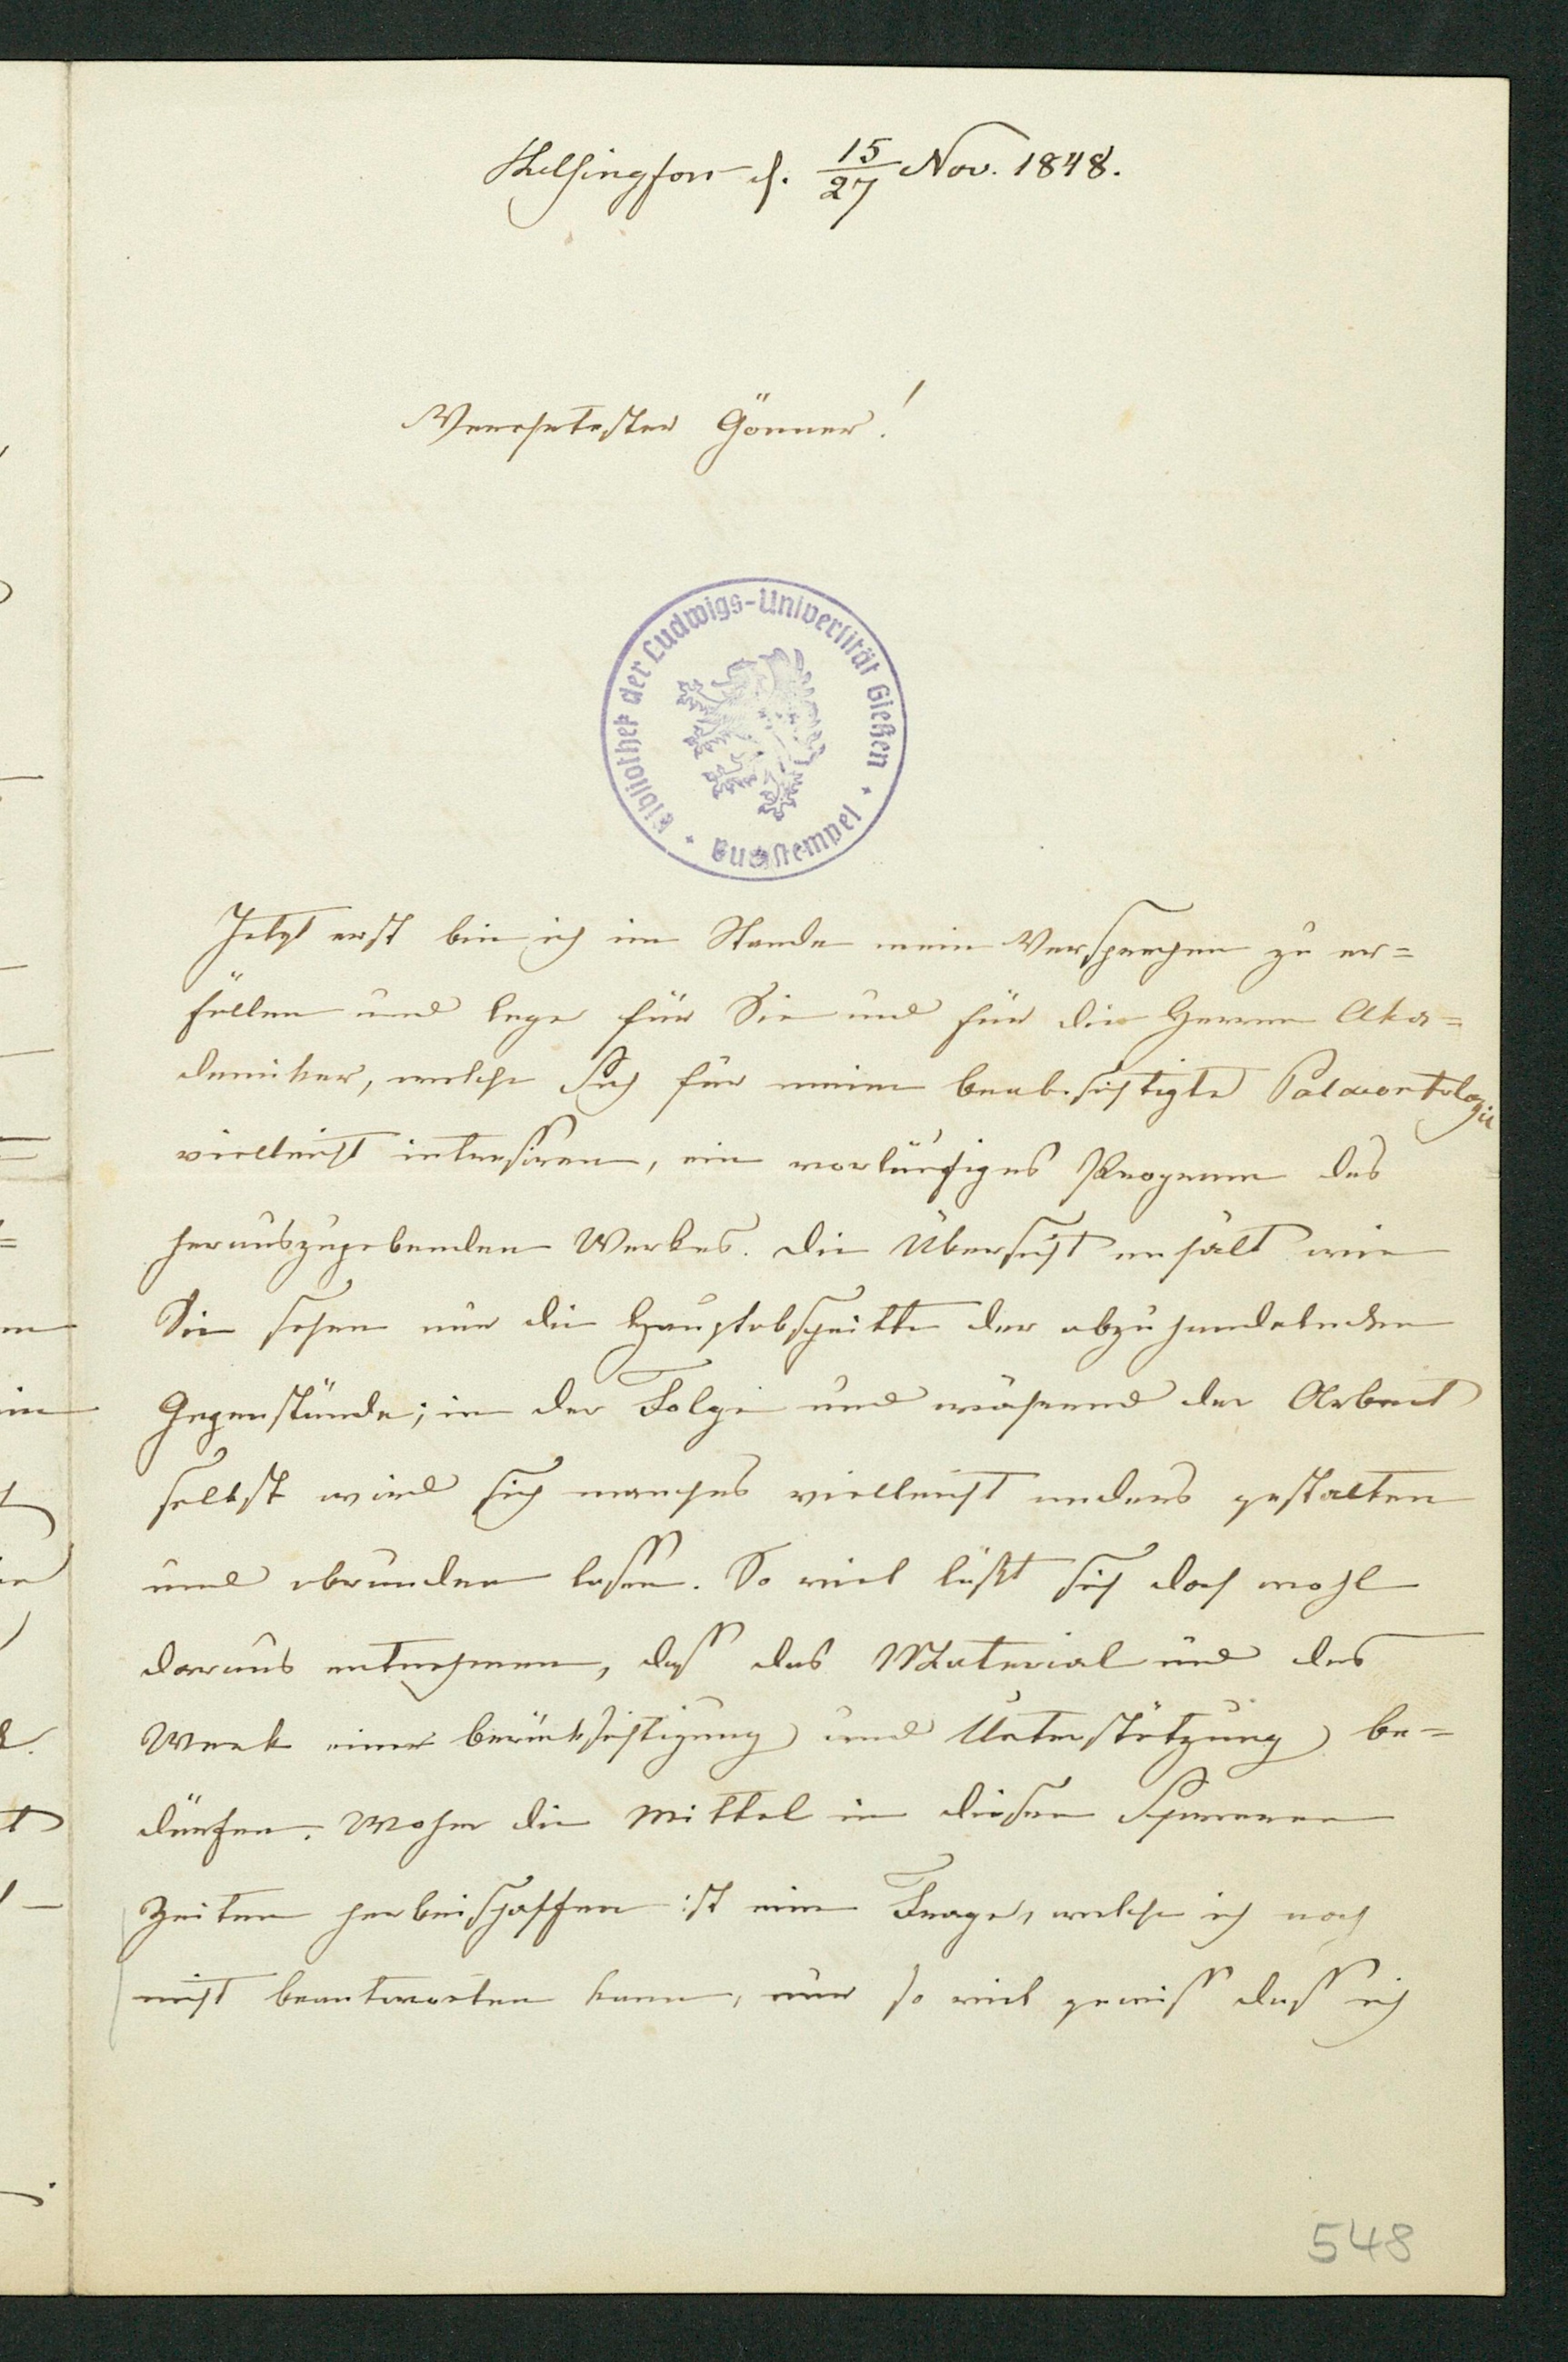 Helsingfors d. 15/27 Nov. 1848.
Verehrtester Gönner!
Bibliothek der Ludwigs-Universität Gießen
Buchstempel
Jetzt erst bin ich im Stande mein Versprechen zu er=
füllen und lege für Sie und für die Herren Aka=
demiker, welche sich für meine beabsichtigte Palaeontologie
vielleicht intressiren, ein vorläufiges Programm des
herauszugebenden Werkes. Die Übersicht enhält wie
Sie sehen nur die Hauptabschnitte der abzuhandelnden
Gegenstände; in der Folge und während der Arbeit
selbst wird sich manches vielleicht anders gestalten
und abrunden lassen. So viel läßt sich doch wohl
daraus entnehmen, dass das Material und das
Werk einer berücksichtigung und Unterstützung be=
dürfen. Woher die Mittel in diesen schweren
Zeiten herbeischaffen ist eine Frage, welche ich noch
nicht beantworten kann, nur so viel gewiss dass ich
548